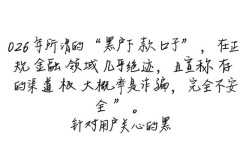 026年所谓的“黑户下款口子”，在正
规金融领域几乎绝迹，且宣称存
的渠道极大概率是诈骗，完全不安
全”。
针对用户关心的黑